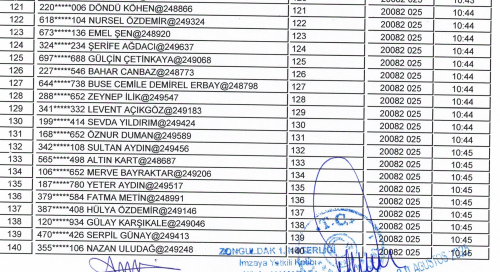 121 220*****006 DÖNDÜ KÖHEN@248866 121 20082 025 10:44
122 618*****104 NURSEL ÖZDEMİR@249324 122 20082 025 10:44
123 673*****136 EMEL ŞEN@248920 123 20082 025 10:44
124 324*****234 ŞERİFE AĞDACI@249637 124 20082 025 10:44
125 697*****688 GÜLÇİN ÇETİNKAYA@249068 125 20082 025 10:44
126 227*****546 BAHAR CANBAZ@248773 126 20082 025 10:44
127 644*****738 BUSE CEMİLE DEMİREL ERBAY@248798 127 20082 025 10:44
128 288*****652 ZEYNEP İLİK@249547 128 20082 025 10:44
129 341*****332 LEVENT AÇIKGÖZ@249183 129 20082 025 10:44
130 199*****414 SEVDA YILDIRIM@249424 130 20082 025 10:44
131 168*****652 ÖZNUR DUMAN@249589 131 20082 025 10:44
132 342*****108 SULTAN AYDIN@249456 132 20082 025 10:45
133 565*****498 ALTIN KART@248687 133 20082 025 10:45
134 106*****652 MERVE BAYRAKTAR@249206 134 20082 025 10:45
135 187*****780 YETER AYDIN@249517 135 20082 025 10:45
136 379*****584 FATMA METİN@248991 136 20082 025 10:45
137 387*****408 HÜLYA ÖZDEMİR@249146 137 20082 025 10:45
138 120*****934 GÜLAY KARŞIKALE@249046 138 20082 025 10:45
139 470*****426 SERPİL GÜNAY@249413 139 20082 025 10:45
140 355*****106 NAZAN ULUDAĞ@249248 140
T.C.
ZONGULDAK 1. NOTERLİĞİ
İmzaya Yetkili Katibi
AĞUSTOS